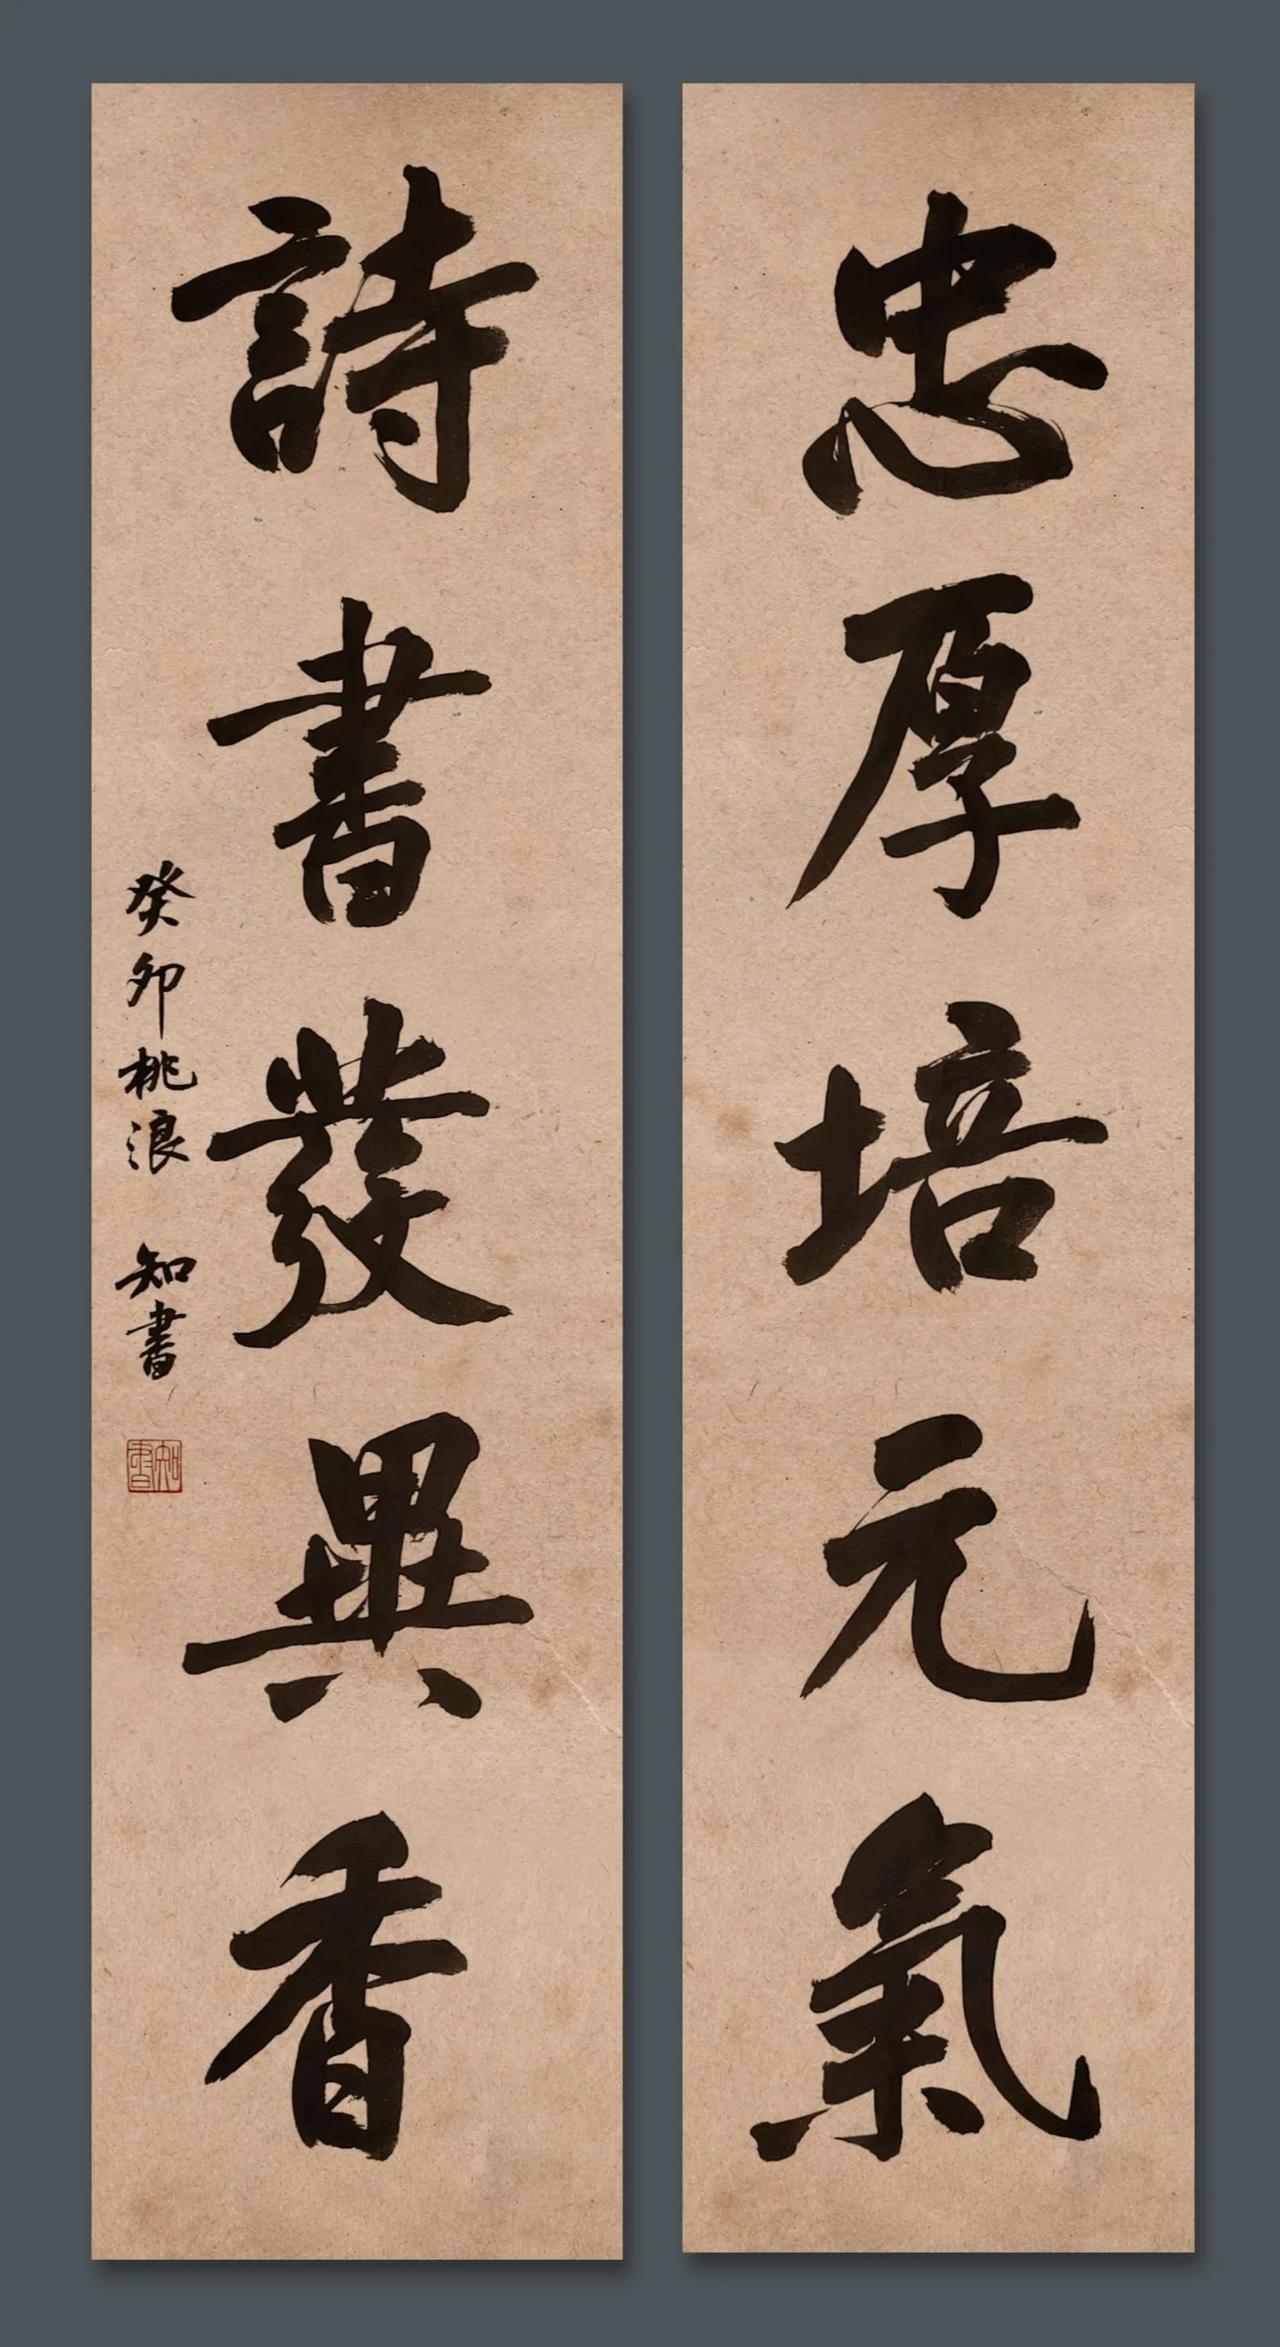 忠厚培元氣
詩書發異香
癸卯桃浪 知書
知書